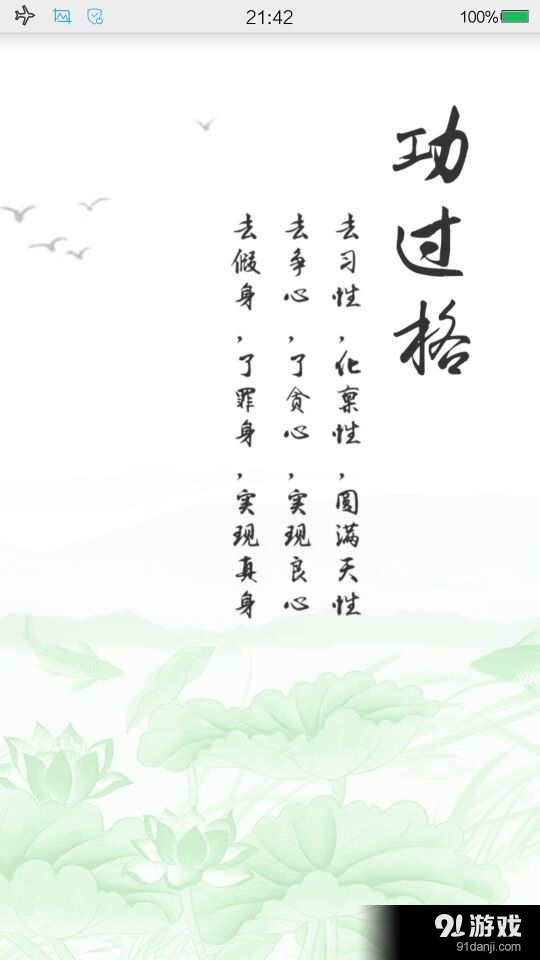 21:42
100%
功过格
去习性，化禀性，圆满天性
去争心，了贪心，实现良心
去假身，了罪身，实现真身
91游戏
91danji.com